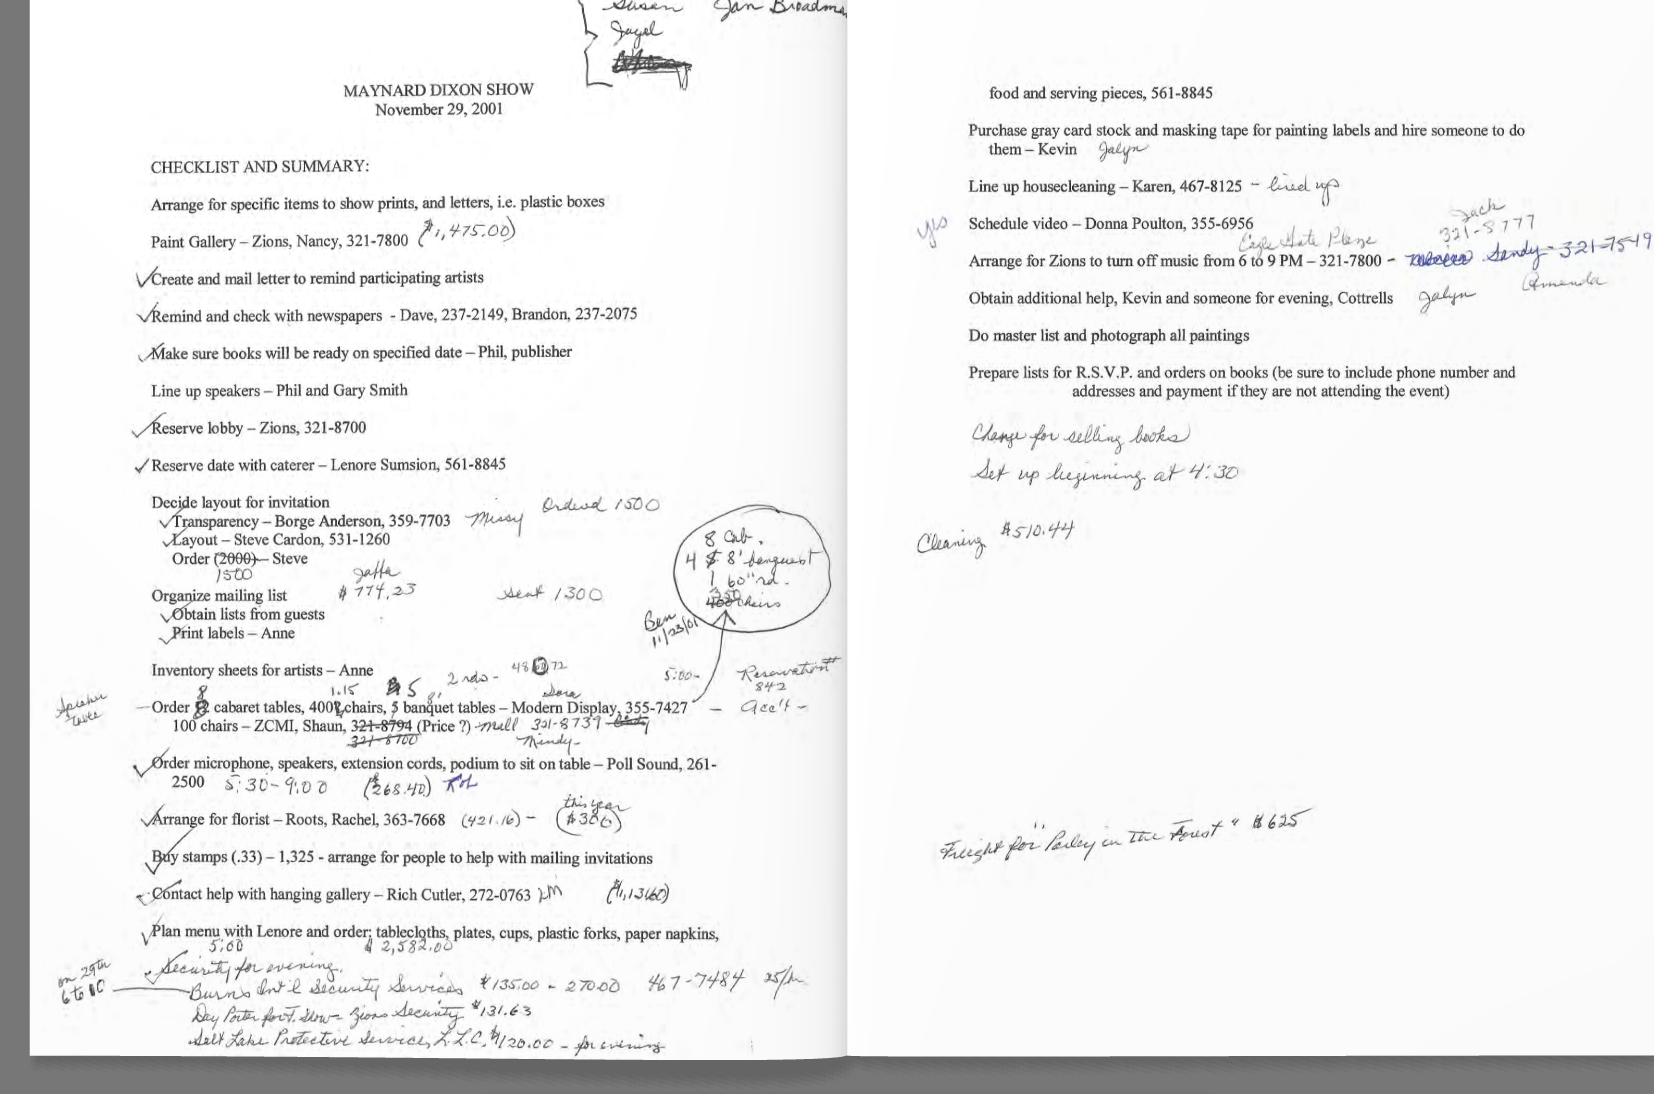 Susan Jan Broadma
Jayel
MAYNARD DIXON SHOW
November 29, 2001
CHECKLIST AND SUMMARY:
Arrange for specific items to show prints, and letters, i.e. plastic boxes
Paint Gallery – Zions, Nancy, 321-7800 ($1,475.00)
Create and mail letter to remind participating artists
Remind and check with newspapers - Dave, 237-2149, Brandon, 237-2075
Make sure books will be ready on specified date – Phil, publisher
Line up speakers – Phil and Gary Smith
Reserve lobby – Zions, 321-8700
Reserve date with caterer – Lenore Sumsion, 561-8845
Decide layout for invitation Ordered 1500
Transparency – Borge Anderson, 359-7703 Missy
Layout – Steve Cardon, 531-1260
Order (2000) – Steve
1500 Jaffa
Organize mailing list $774.23 sent 1300
Obtain lists from guests
Print labels – Anne
8 Cab.
4 8' banquet
1 60" rd.
350 chairs
Ben
11/23/01
Inventory sheets for artists – Anne 2 rds - 48 60 72 5:00- Reservation#
842
8 1.15 5 8' Dora
Speaker
table
Order 8 cabaret tables, 400 chairs, 5 banquet tables – Modern Display, 355-7427 – Acc't –
100 chairs – ZCMI, Shaun, 321-8794 (Price ?) - mall 321-8739
321-8700 Mindy-
Order microphone, speakers, extension cords, podium to sit on table – Poll Sound, 261-
2500 5:30-9:00 ($268.40)
this year
Arrange for florist – Roots, Rachel, 363-7668 (421.16) – ($300)
Buy stamps (.33) – 1,325 - arrange for people to help with mailing invitations
Contact help with hanging gallery – Rich Cutler, 272-0763 LM
Plan menu with Lenore and order; tablecloths, plates, cups, plastic forks, paper napkins,
5:00 $2,582.00
Security for evening.
on 29th
6 to 10
Burns Int'l Security Services $135.00 - 270.00 467-7484 25/hr
Day Porter for Show - Zions Security $131.63
Salt Lake Protective Service, L.L.C. $120.00 - for evening
food and serving pieces, 561-8845
Purchase gray card stock and masking tape for painting labels and hire someone to do
them – Kevin Jalyn
Line up housecleaning – Karen, 467-8125 - lined up
yes Schedule video – Donna Poulton, 355-6956
Jack
321-8777
Eagle Gate Plaza
Arrange for Zions to turn off music from 6 to 9 PM – 321-7800 - Sandy - 321-7549
Amanda
Obtain additional help, Kevin and someone for evening, Cottrells Jalyn
Do master list and photograph all paintings
Prepare lists for R.S.V.P. and orders on books (be sure to include phone number and
addresses and payment if they are not attending the event)
Change for selling books
Set up beginning at 4:30
Cleaning $510.44
Freight for "Parley in the Forest" $625